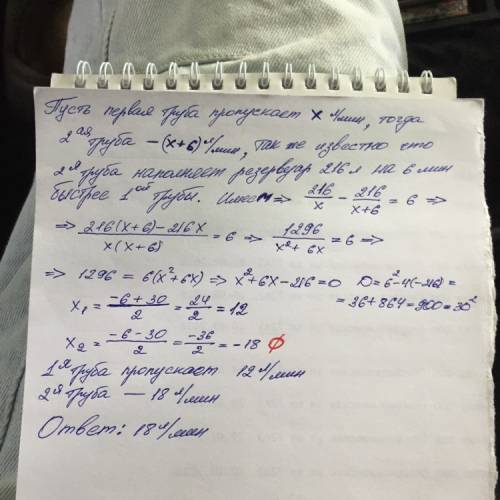 Пусть первая труба пропускает x л/мин, тогда
2ая труба – (x+6) л/мин, так же известно что
2я труба наполняет резервуар 216 л на 6 мин
быстрее 1ой трубы. Имеем ⇒ 216/x − 216/(x+6) = 6 ⇒
⇒ (216(x+6)−216x)/(x(x+6)) = 6 ⇒ 1296/(x²+6x) = 6 ⇒
⇒ 1296 = 6(x²+6x) ⇒ x²+6x−216=0 D=6²−4(−216)=
x₁ = (−6+30)/2 = 24/2 = 12 =36+864=900=30²
x₂ = (−6−30)/2 = −36/2 = −18 ∅
1я труба пропускает 12 л/мин
2я труба — 18 л/мин
Ответ: 18 л/мин